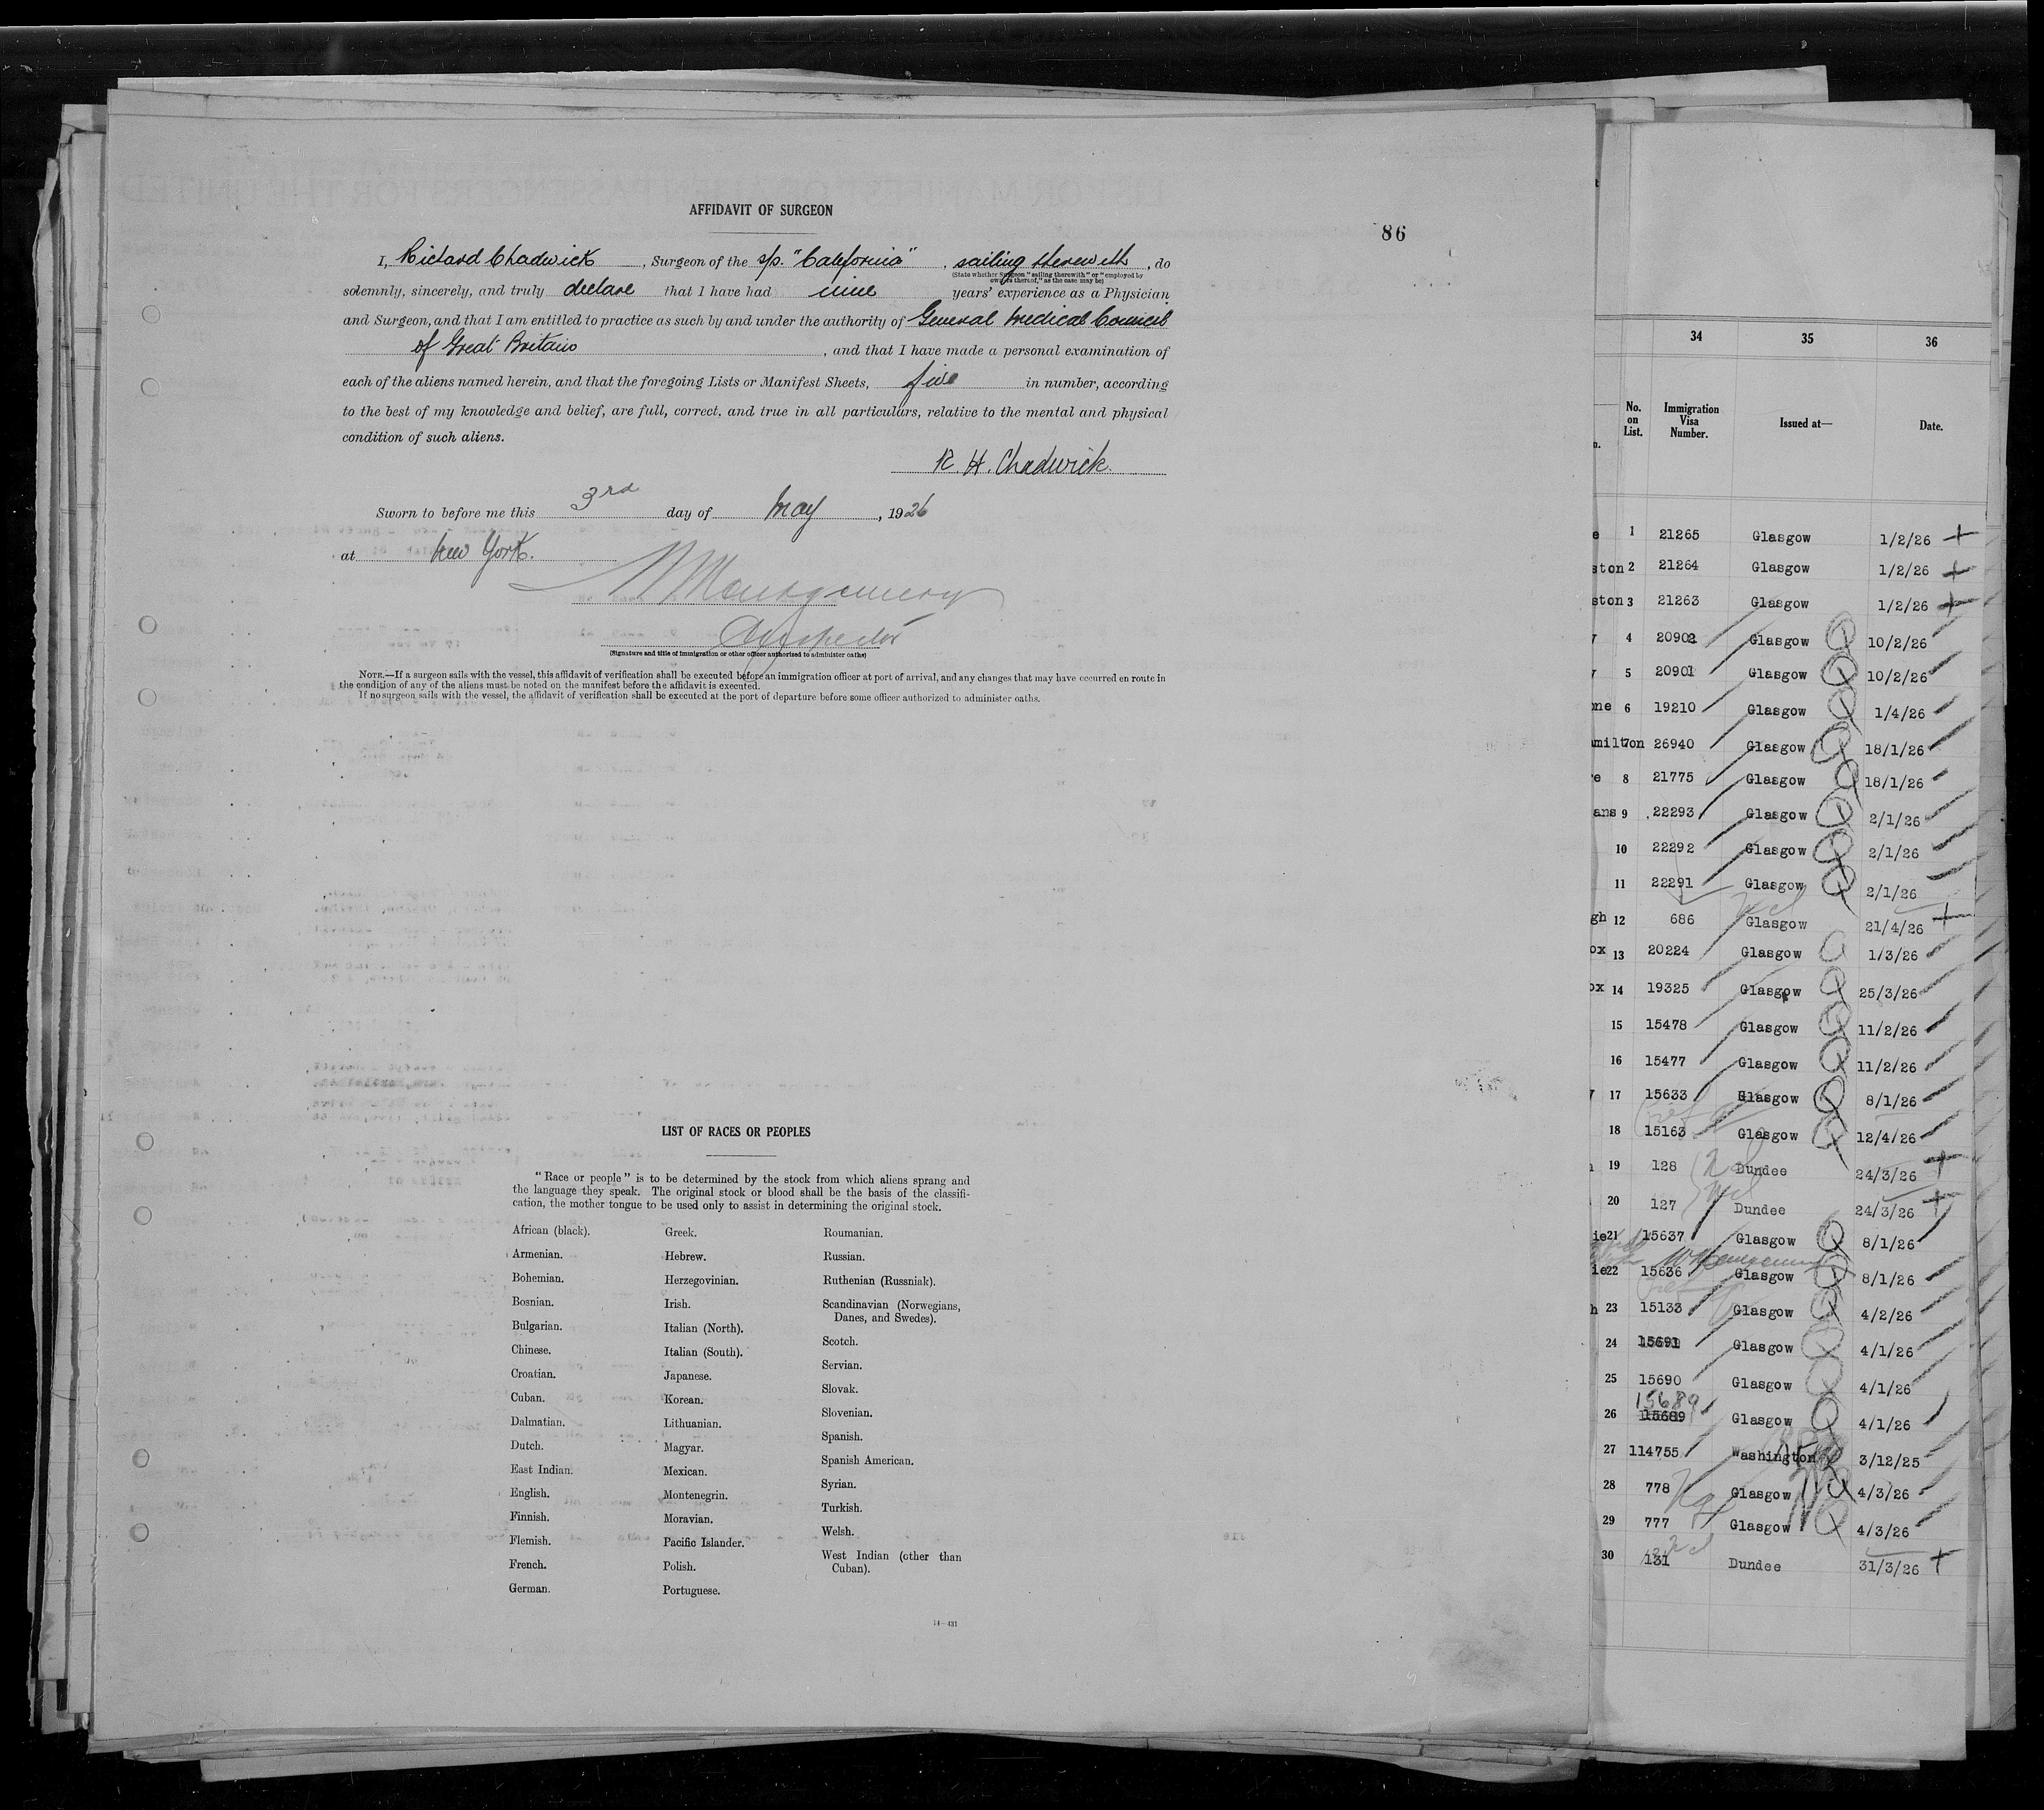 AFFIDAVIT OF SURGEON
86
I, Richard Chadwick, Surgeon of the s/s. "California", sailing therewith, do
(State whether Surgeon "sailing therewith" or "employed by
owners thereof," as the case may be)
solemnly, sincerely, and truly declare that I have had nine years' experience as a Physician
and Surgeon, and that I am entitled to practice as such by and under the authority of General Medical Council
of Great Britain, and that I have made a personal examination of
each of the aliens named herein, and that the foregoing Lists or Manifest Sheets, five in number, according
to the best of my knowledge and belief, are full, correct, and true in all particulars, relative to the mental and physical
condition of such aliens.
R. H. Chadwick.
Sworn to before me this 3rd day of May, 1926
at New York.
Montgomery
Inspector
(Signature and title of immigration or other officer authorized to administer oaths)
NOTE.—If a surgeon sails with the vessel, this affidavit of verification shall be executed before an immigration officer at port of arrival, and any changes that may have occurred en route in
the condition of any of the aliens must be noted on the manifest before the affidavit is executed.
If no surgeon sails with the vessel, the affidavit of verification shall be executed at the port of departure before some officer authorized to administer oaths.
LIST OF RACES OR PEOPLES
"Race or people" is to be determined by the stock from which aliens sprang and
the language they speak. The original stock or blood shall be the basis of the classifi-
cation, the mother tongue to be used only to assist in determining the original stock.
African (black).
Armenian.
Bohemian.
Bosnian.
Bulgarian.
Chinese.
Croatian.
Cuban.
Dalmatian.
Dutch.
East Indian.
English.
Finnish.
Flemish.
French.
German.
Greek.
Hebrew.
Herzegovinian.
Irish.
Italian (North).
Italian (South).
Japanese.
Korean.
Lithuanian.
Magyar.
Mexican.
Montenegrin.
Moravian.
Pacific Islander.
Polish.
Portuguese.
Roumanian.
Russian.
Ruthenian (Russniak).
Scandinavian (Norwegians,
Danes, and Swedes).
Scotch.
Servian.
Slovak.
Slovenian.
Spanish.
Spanish American.
Syrian.
Turkish.
Welsh.
West Indian (other than
Cuban).
14—431
34 35 36
No. on List. Immigration Visa Number. Issued at— Date.
1 21265 Glasgow 1/2/26
ston 2 21264 Glasgow 1/2/26
ston 3 21263 Glasgow 1/2/26
4 20902 Glasgow 10/2/26
5 20901 Glasgow 10/2/26
ne 6 19210 Glasgow 1/4/26
milton 7 26940 Glasgow 18/1/26
e 8 21775 Glasgow 18/1/26
ans 9 22293 Glasgow 2/1/26
10 22292 Glasgow 2/1/26
11 22291 Glasgow 2/1/26
gh 12 686 Glasgow 21/4/26
ox 13 20224 Glasgow 1/3/26
ox 14 19325 Glasgow 25/3/26
15 15478 Glasgow 11/2/26
16 15477 Glasgow 11/2/26
17 15633 Glasgow 8/1/26
18 15163 Glasgow 12/4/26
19 128 Dundee 24/3/26
20 127 Dundee 24/3/26
ie 21 15637 Glasgow 8/1/26
ie 22 15636 Glasgow 8/1/26
h 23 15133 Glasgow 4/2/26
24 15691 Glasgow 4/1/26
25 15690 Glasgow 4/1/26
15689
26 15689 Glasgow 4/1/26
27 114755 Washington 3/12/25
28 778 Glasgow 4/3/26
29 777 Glasgow 4/3/26
30 131 Dundee 31/3/26